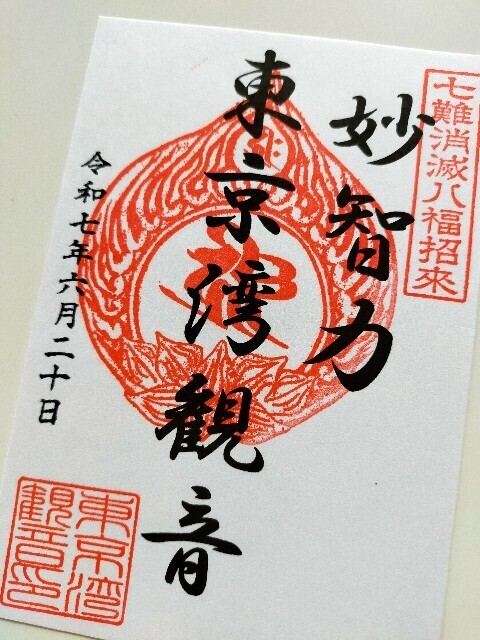 七難消滅八福招來
妙智力
東京湾観音
令和七年六月二十日
東京湾
観音印